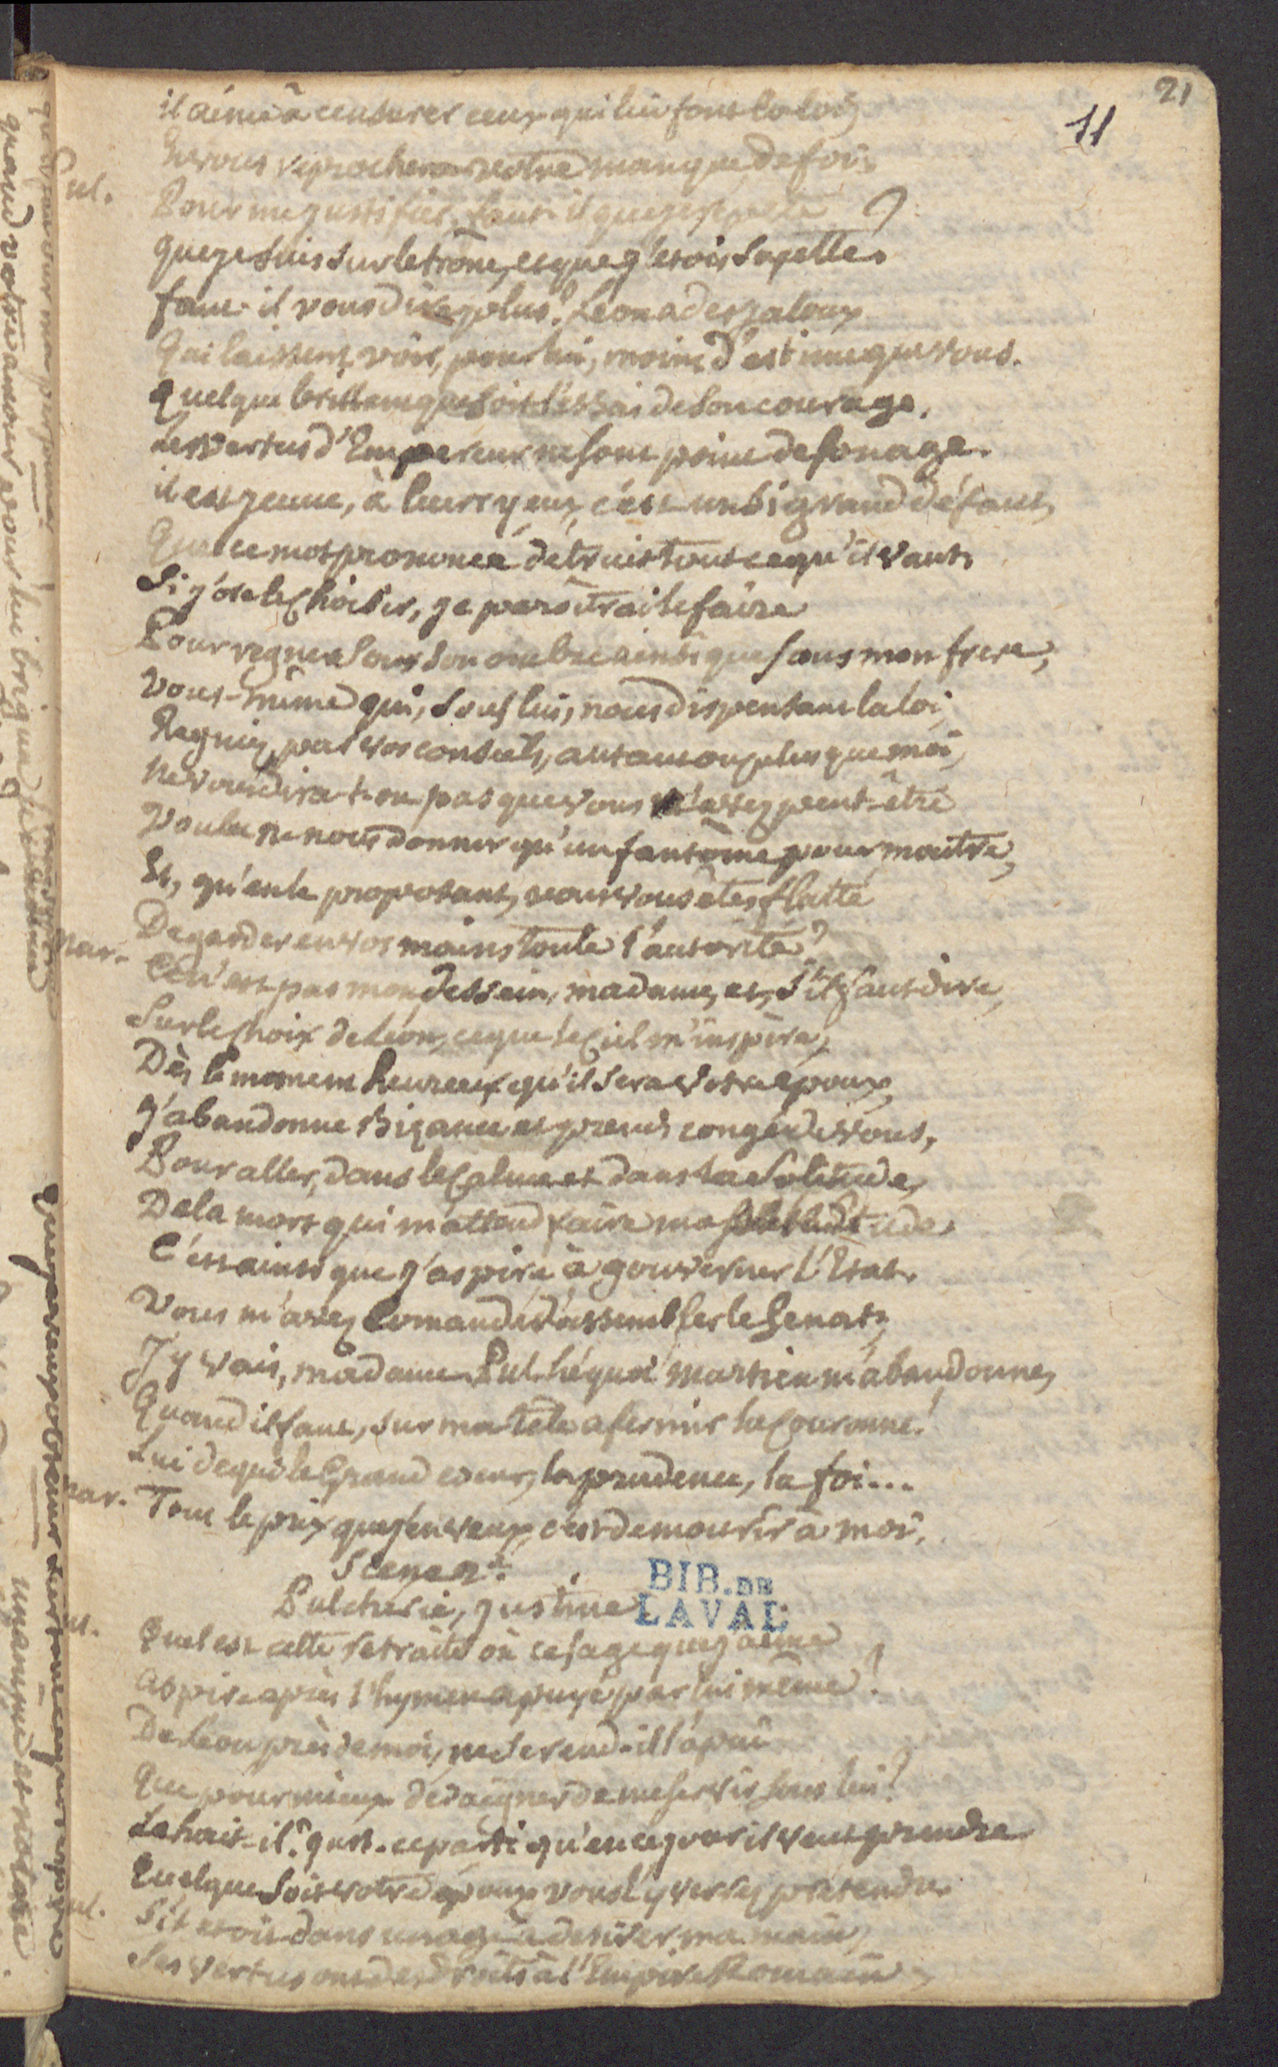 21
11
il aime à censurer ceux qui lui font la loi,
Et vous reprochera votre manque de foi.
Pul. Pour me justifier, faut-il que je appelle
que je suis sur le trône, et que j'etois sujette?
faut-il vous dire plus? Leon a des jaloux
Qui laissent voir, pour lui, moins d'estime que vous.
quelque brillant que soit l'essai de son courage,
Les vertus d'Empereur ne sont point de son age.
il est jeune, à leurs yeux c'est un si grand défaut,
Que ce mot prononcé détruit tout ce qu'il vaut.
Si j'ose le choisir, je paroîtrai le faire
Pour regner sous son ombre ainsi que sous mon frere,
vous-même qui, sous lui, nous dispensant la loi,
Regniez, par vos conseils, autant ou plus que moi,
Ne vous dira-t-on pas que vous n'avez peut-être
voulu ne nous donner qu'un fantôme pour maitre,
Et, qu'en le proposant, vous vous êtes flatté
De garder en vos mains toute l'autorité?
Mar. Ce n'est pas mon dessein, madame, et, s'il faut dire,
Sur le choix de Leon, ce que le Ciel m'inspire,
Dès le moment heureux qu'il sera votre epoux,
j'abandonne Bizance et prends congé de vous,
Pour aller, dans le Calme et dans la solitude,
De la mort qui m'attend faire ma seule Etude.
C'est ainsi que j'aspire à gouverner l'Etat.
Vous m'avez comandé d'assembler le Senat,
J'y vais, madame. Pul. hé quoi Martien m'abandonne,
Quand il faut, sur ma tête afermir la Couronne!
Lui de qui le Grand coeur, la prudence, la foi...
Mar. Tout le prix que j'en veux c'est de mourir à moi.
Scene 2e.
Pulcherie, justine
Pul. Quel est cette retraite où ce sage que j'aime
aspire après l'hymen apuyé par lui même?
De Leon près de moi, ne se rend-il l'apui
Que pour mieux dédaigner de me servir sous lui?
Le hait-il? just. ce parti qu'en ce jour il veut prendre
Quelque soit votre epoux vous l'y verrez prétendre.
Pul. S'il etoit dans un age à desirer ma main,
Ses vertus ont des droits à l'Empire Romain,
BIB. DE
LAVAL